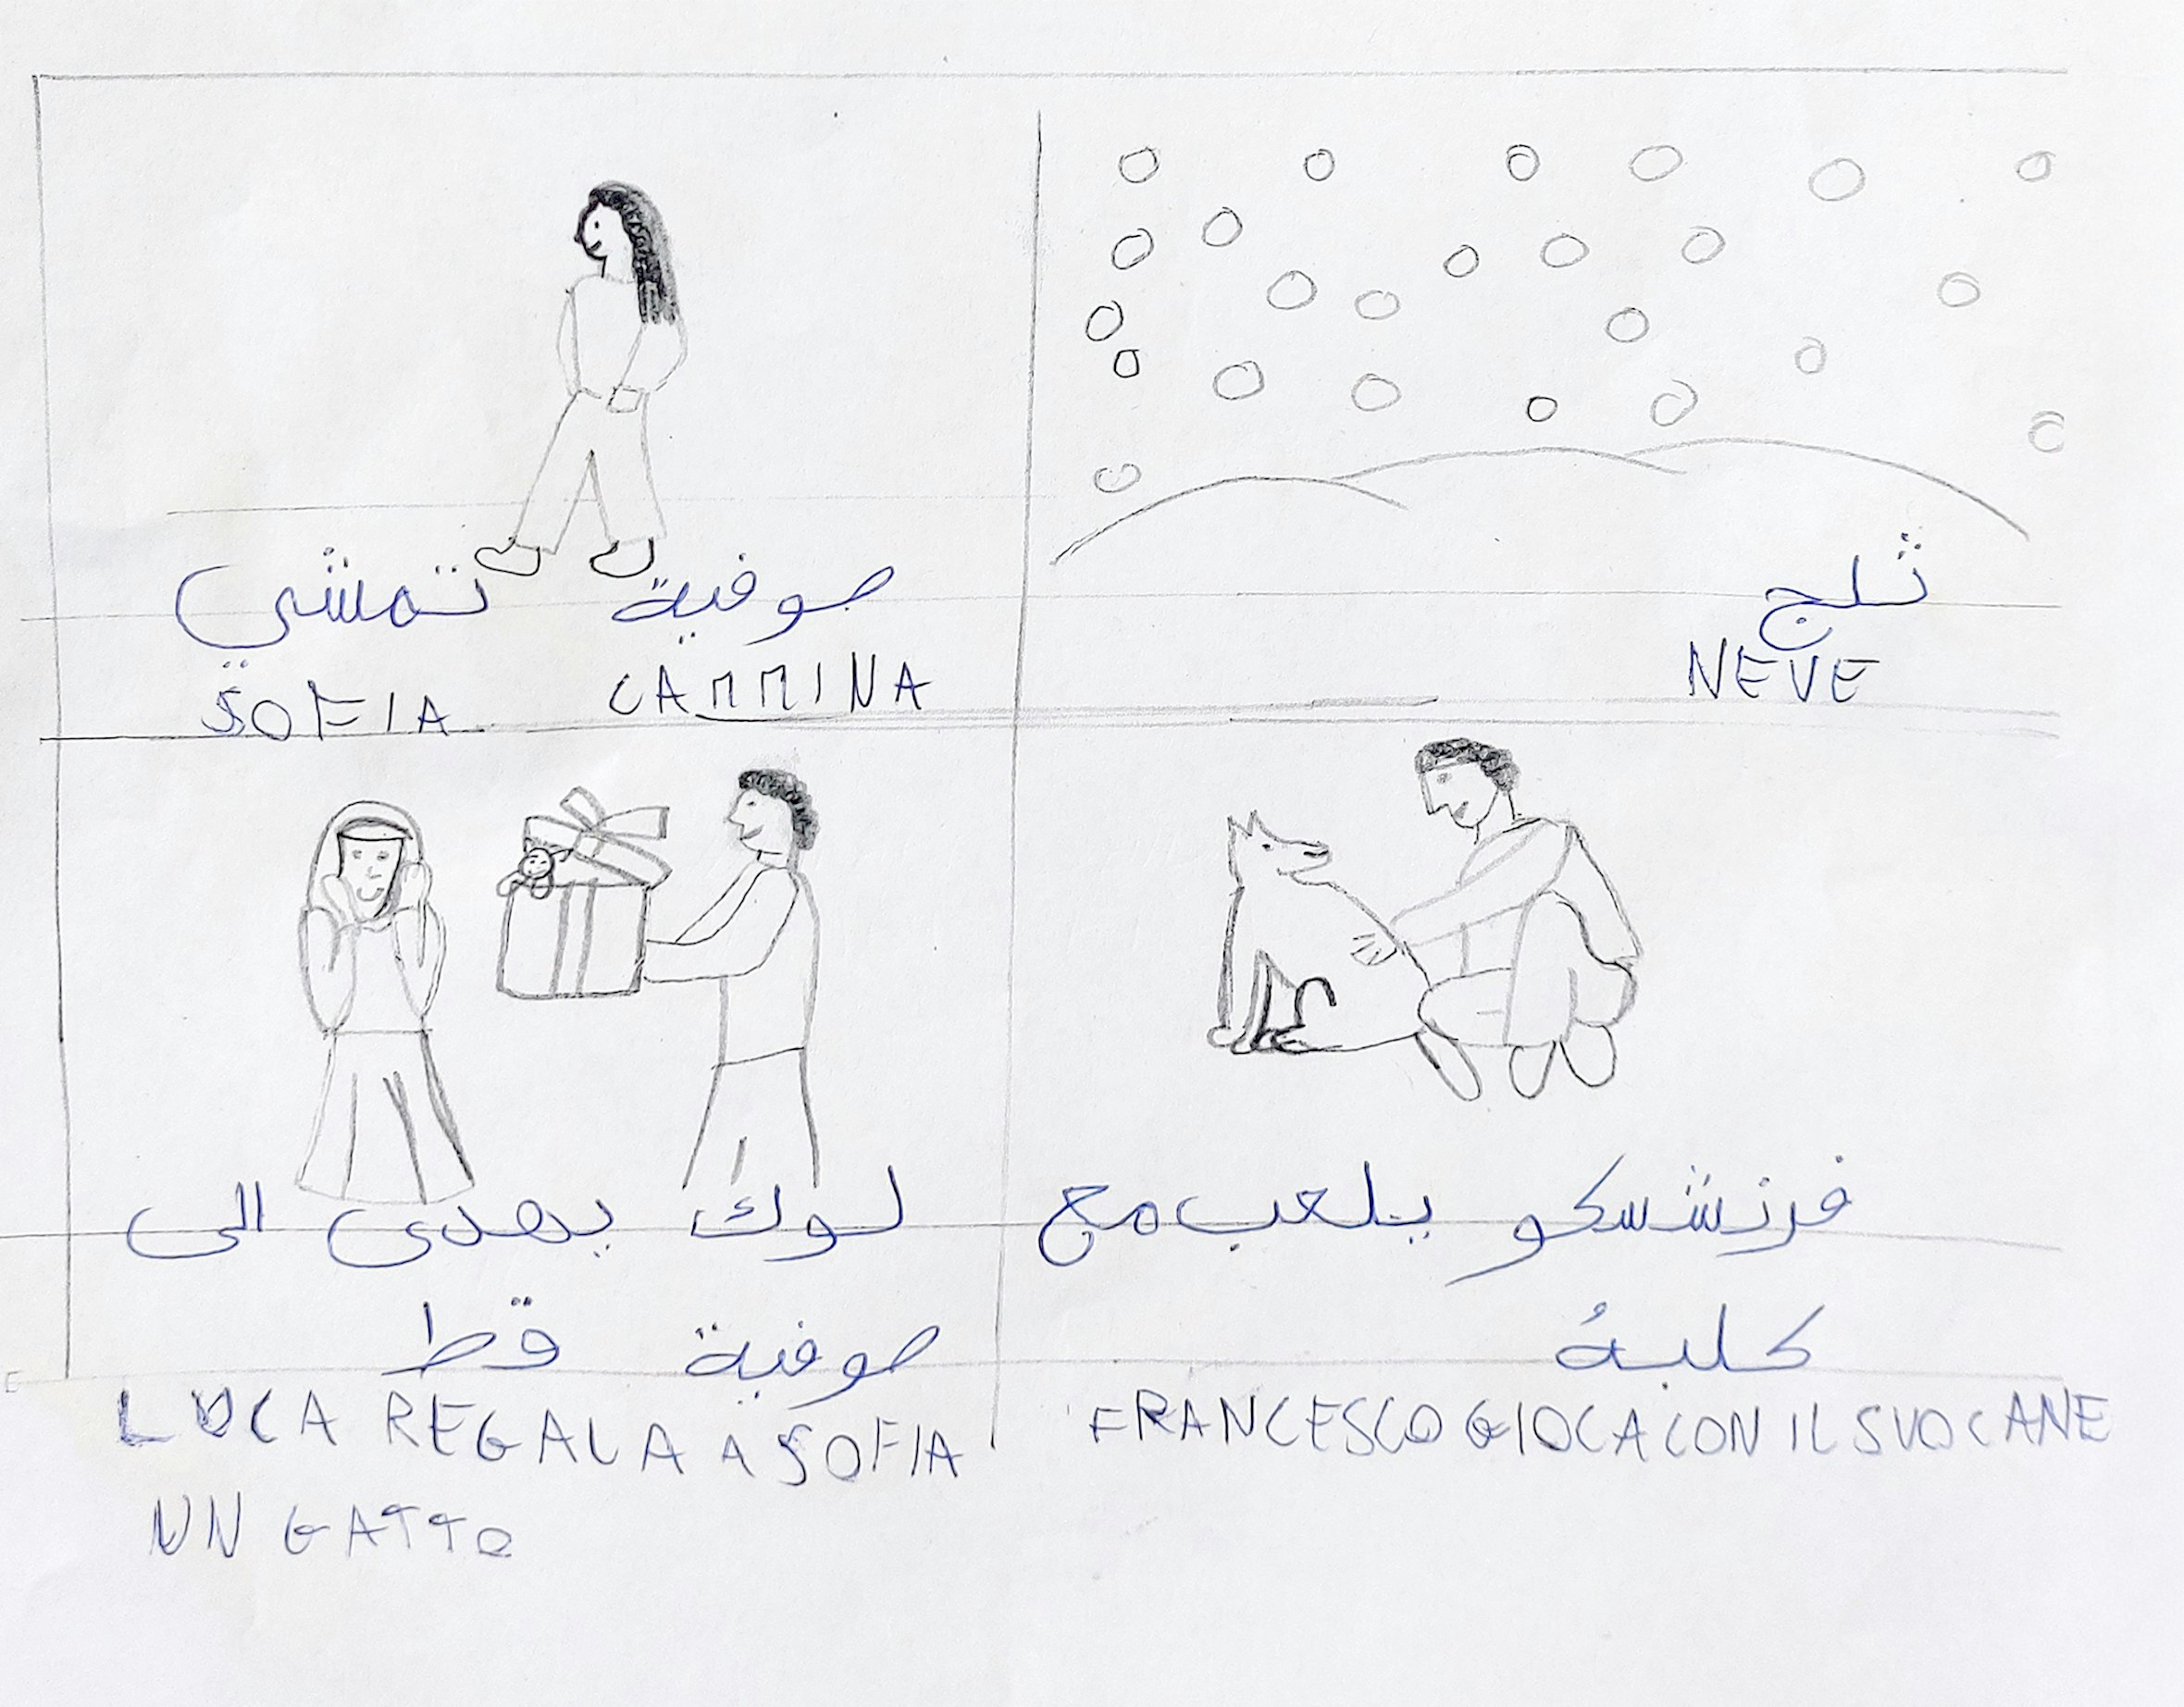 صوفية تمشي
SOFIA CAMMINA
ثلج
NEVE
لوك يهدى الى
صوفية قط
LUCA REGALA A SOFIA
UN GATTO
فرنشسكو يلعب مع
كلبهُ
FRANCESCO GIOCA CON IL SUO CANE